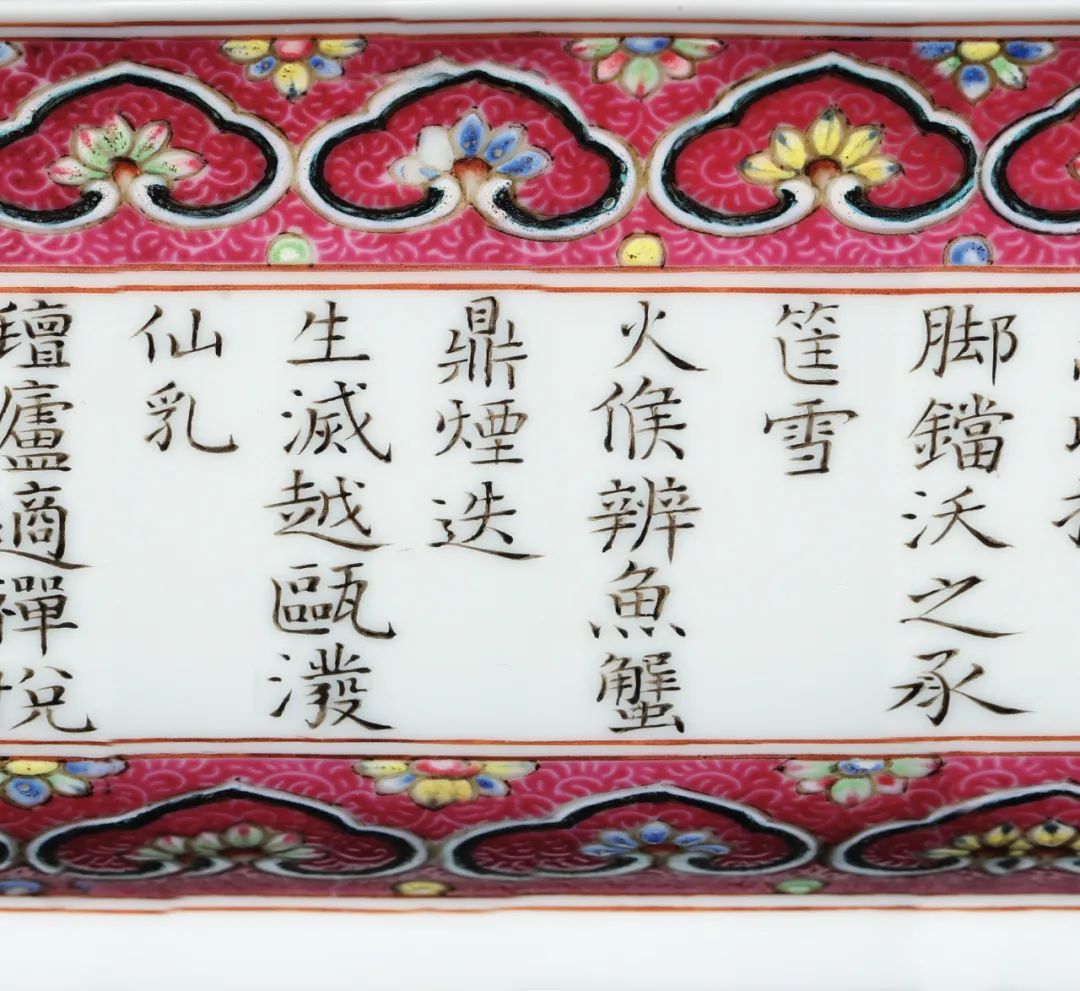 脚鐺沃之承
筐雪
火候辨魚蟹
鼎煙迭
生滅越甌潑
仙乳
氊廬適禪悅